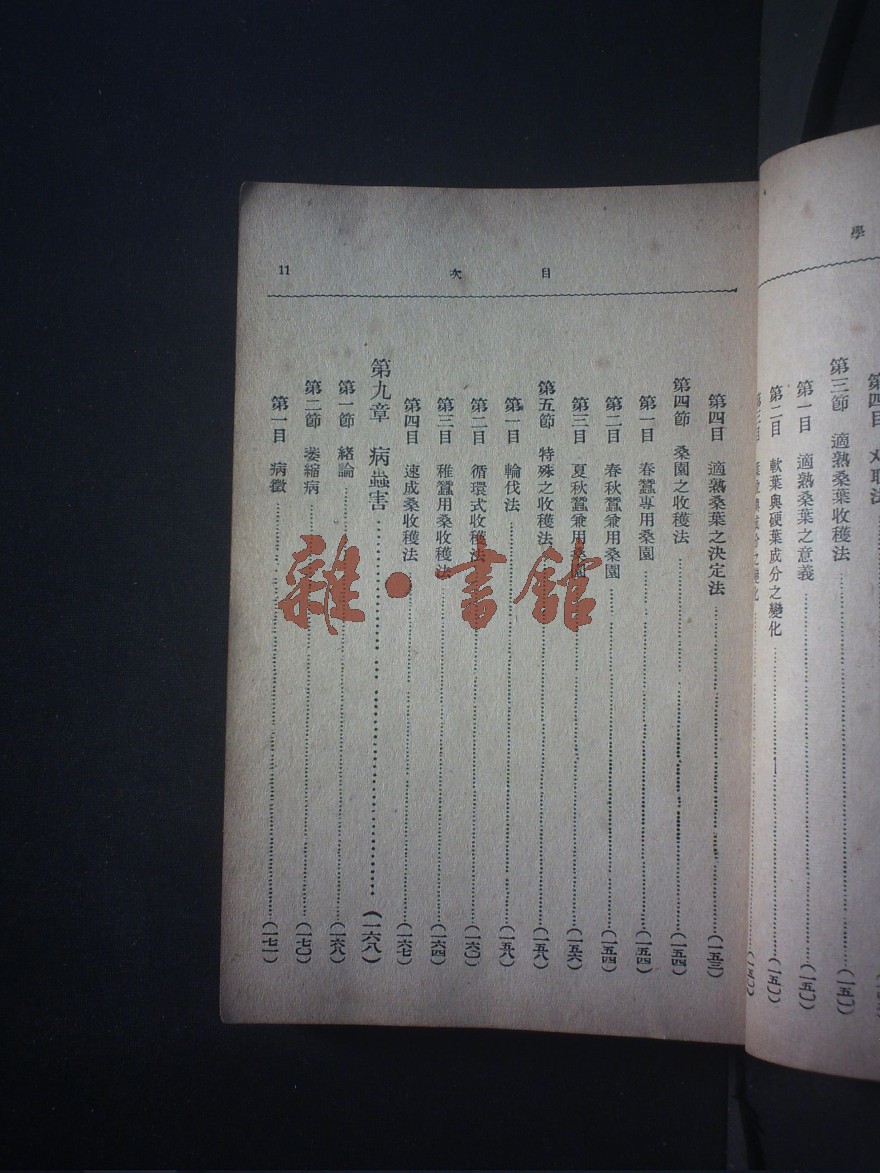 學
第四目 刈取法
第三節 適熟桑葉收穫法……(一五〇)
第一目 適熟桑葉之意義……(一五〇)
第二目 軟葉與硬葉成分之變化……(一五〇)
目 次 11
第四目 適熟桑葉之決定法……(一五三)
第四節 桑園之收穫法……(一五四)
第一目 春蠶專用桑園……(一五四)
第二目 春秋蠶兼用桑園……(一五四)
第三目 夏秋蠶兼用桑園……(一五六)
第五節 特殊之收穫法……(一五八)
第一目 輪伐法……(一五八)
第二目 循環式收穫法……(一六〇)
第三目 稚蠶用桑收穫法……(一六四)
第四目 速成桑收穫法……(一六七)
第九章 病蟲害……(一六八)
第一節 緒論……(一六八)
第二節 萎縮病……(一七〇)
第一目 病徵……(一七一)
雜·書館